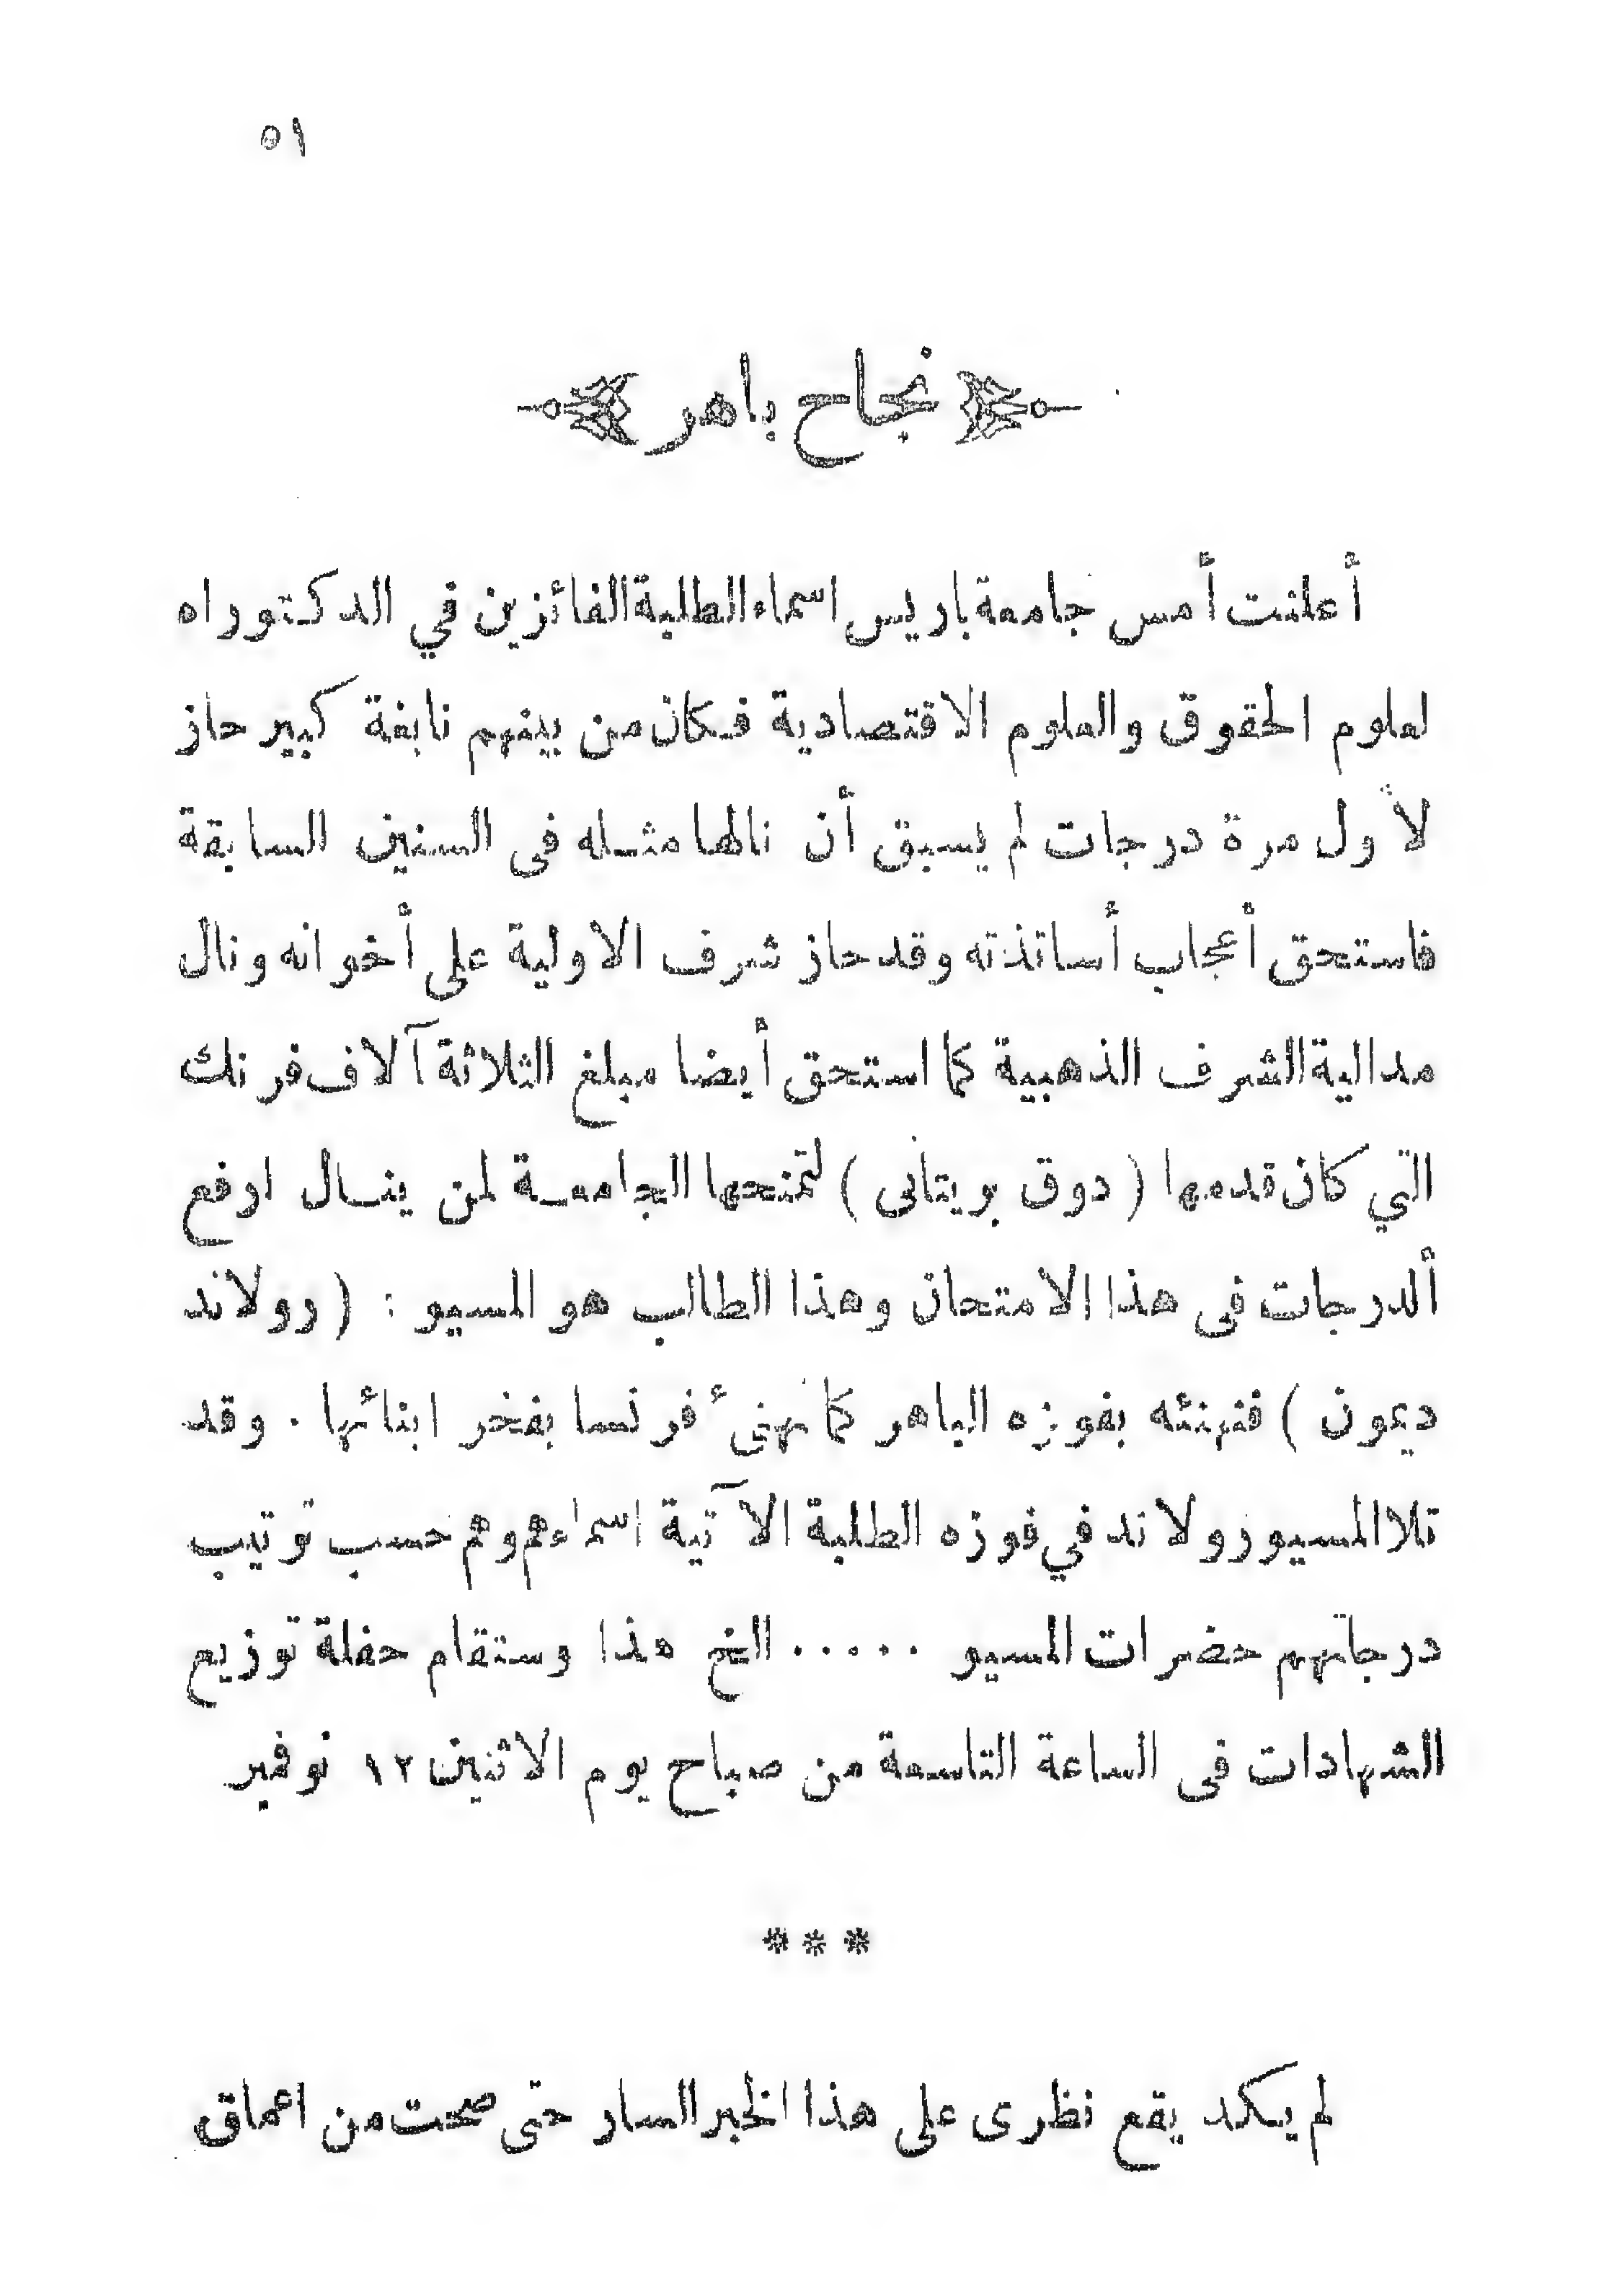 ٥١
نجاح باهر
أعلنت أمس جامعة باريس اسماء الطلبة الفائزين في الدكتوراه
لعلوم الحقوق والعلوم الاقتصادية فكان من بينهم نابغة كبير حاز
لأول مرة درجات لم يسبق أن نالها مثله فى السنين السابقة
فاستحق أعجاب أساتذته وقد حاز شرف الاولية على أخوانه ونال
مدالية الشرف الذهبية كما استحق أيضا مبلغ الثلاثة آلاف فرنك
التي كان قدمها ( دوق بريتانى ) لتمنحها الجامعة لمن ينال ارفع
ألدرجات فى هذا الامتحان وهذا الطالب هو المسيو : ( رولاند
ديمون ) فنهنئه بفوزه الباهر كما نهنئ فرنسا بفخر ابنائها . وقد
تلا المسيو رولاند في فوزه الطلبة الآتية اسماءهم وهم حسب ترتيب
درجاتهم حضرات المسيو ..... الخ هذا وستقام حفلة توزيع
الشهادات فى الساعة التاسعة من صباح يوم الاثنين ١٢ نوفمبر
* * *
لم يكد يقع نظرى على هذا الخبر السار حتى صحت من اعماق